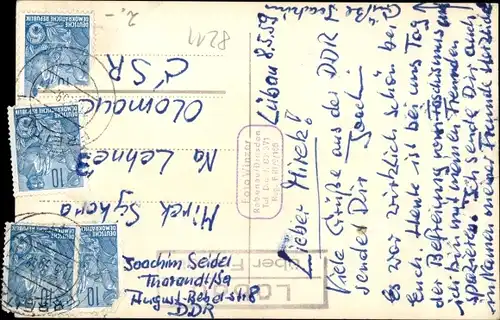 Lübau 8.5.59
Lieber Mirek!
Viele Grüße aus der DDR
sendet Dir Joachi.
Es war wirklich schön bei
Euch. Heute ist bei uns Tag
der Befreiung vom Faschismus u.
ich bin mit meinen Freunden
spazieren. Ich sende Dir auch
im Namen meiner Freunde herzliche
Grüße Joachim
2,-
8211
ČSR
OLOMOUC
Na Lehnez
Mirek Sykora
Joachim Seidel
Tharandt/Sa
August-Bebel-Str
DDR
Foto Winzer
Rabenau/Dresden
LÜBAU
über F
DEUTSCHE
DEMOKRATISCHE REPUBLIK
10
DEUTSCHE
DEMOKRATISCHE REPUBLIK
10
DEUTSCHE
DEMOKRATISCHE REPUBLIK
10
10